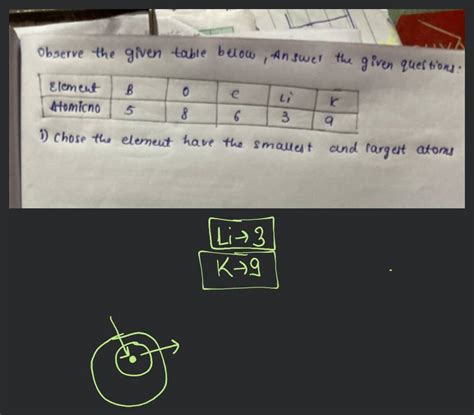 Observe the given table below, Answer the given questions.
Element B O C Li K
Atomicno 5 8 6 3 9
1) Chose the element have the smallest and largest atoms
Li→3
K→9